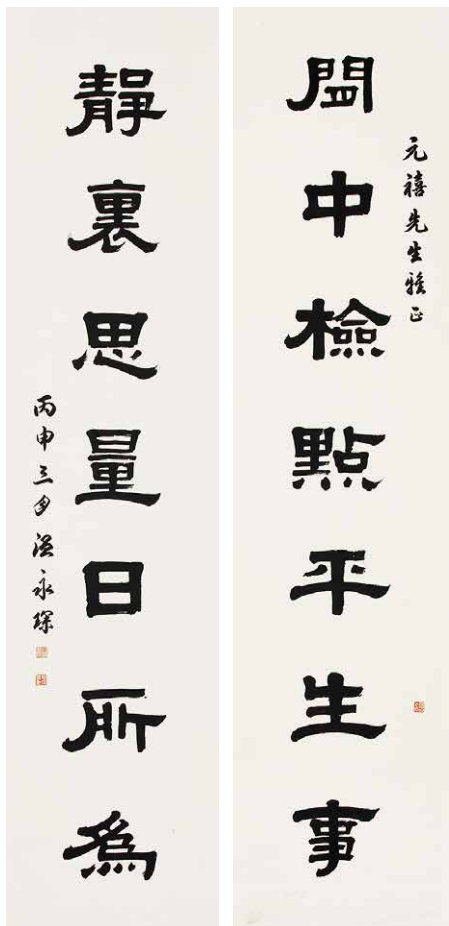 元禧先生雅正
閒中檢點平生事
靜裏思量日所為
丙申三月溫永琛